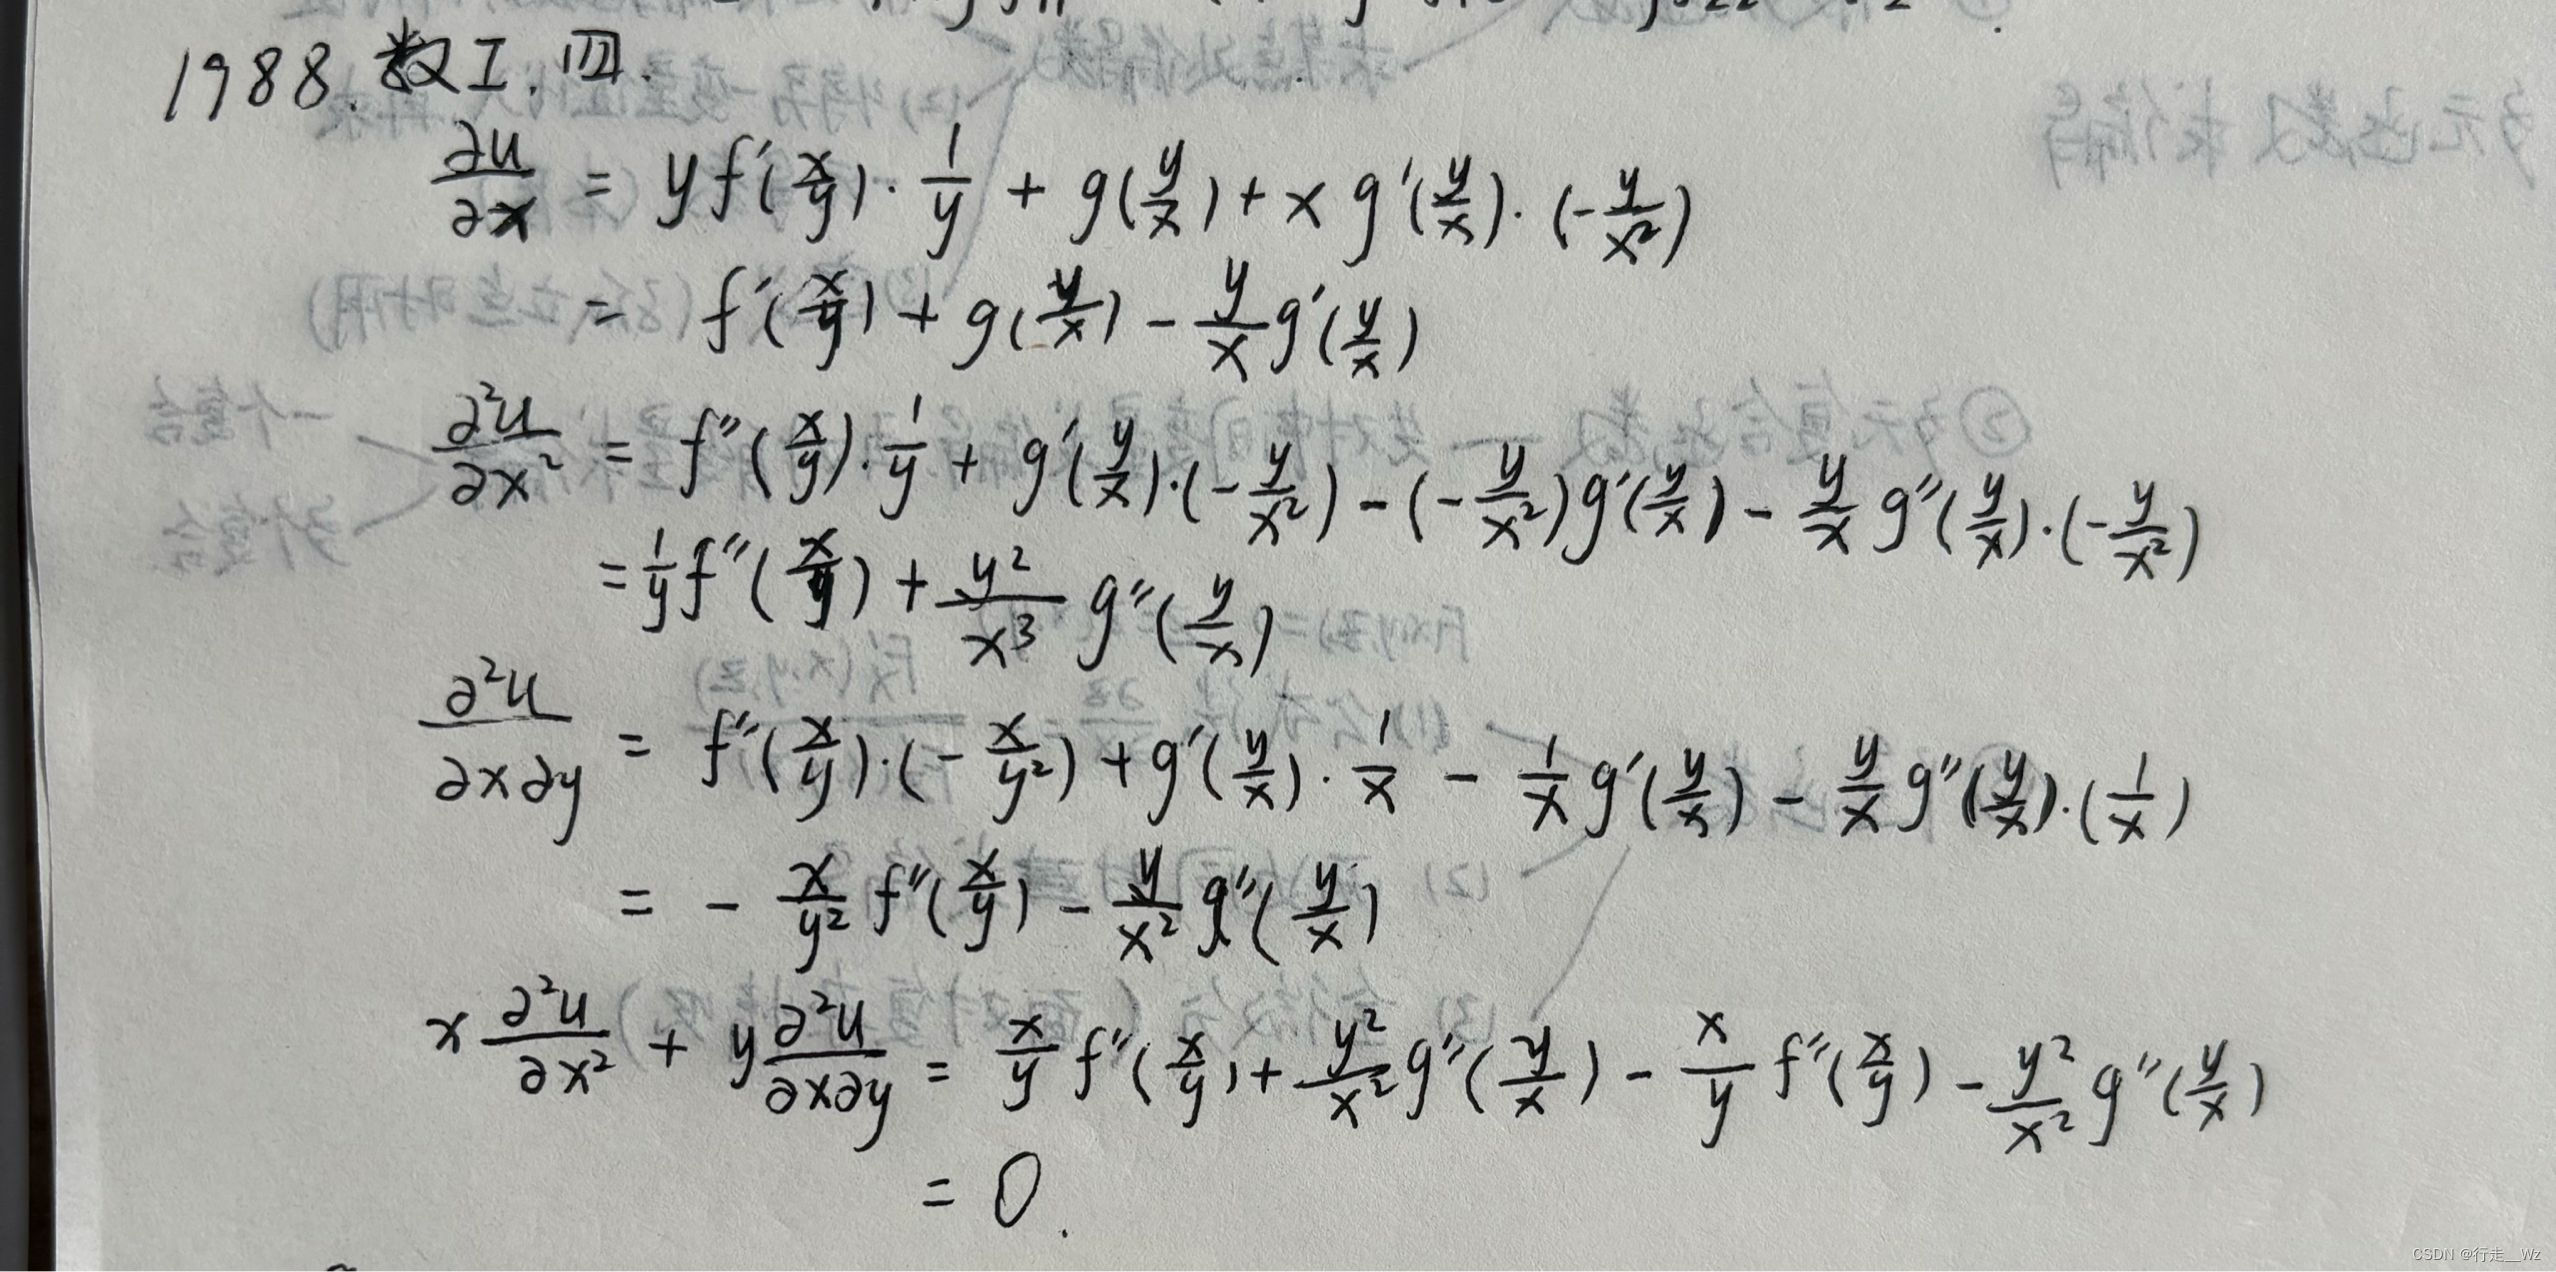 1988. 数I. 四.
∂u/∂x = y f'(x/y)·1/y + g(y/x) + x g'(y/x)·(-y/x²)
= f'(x/y) + g(y/x) - y/x g'(y/x)
∂²u/∂x² = f''(x/y)·1/y + g'(y/x)·(-y/x²) - (-y/x²)g'(y/x) - y/x g''(y/x)·(-y/x²)
= 1/y f''(x/y) + y²/x³ g''(y/x)
∂²u/∂x∂y = f''(x/y)·(-x/y²) + g'(y/x)·1/x - 1/x g'(y/x) - y/x g''(y/x)·(1/x)
= - x/y² f''(x/y) - y/x² g''(y/x)
x ∂²u/∂x² + y ∂²u/∂x∂y = x/y f''(x/y) + y²/x² g''(y/x) - x/y f''(x/y) - y²/x² g''(y/x)
= 0.
CSDN @行走__Wz